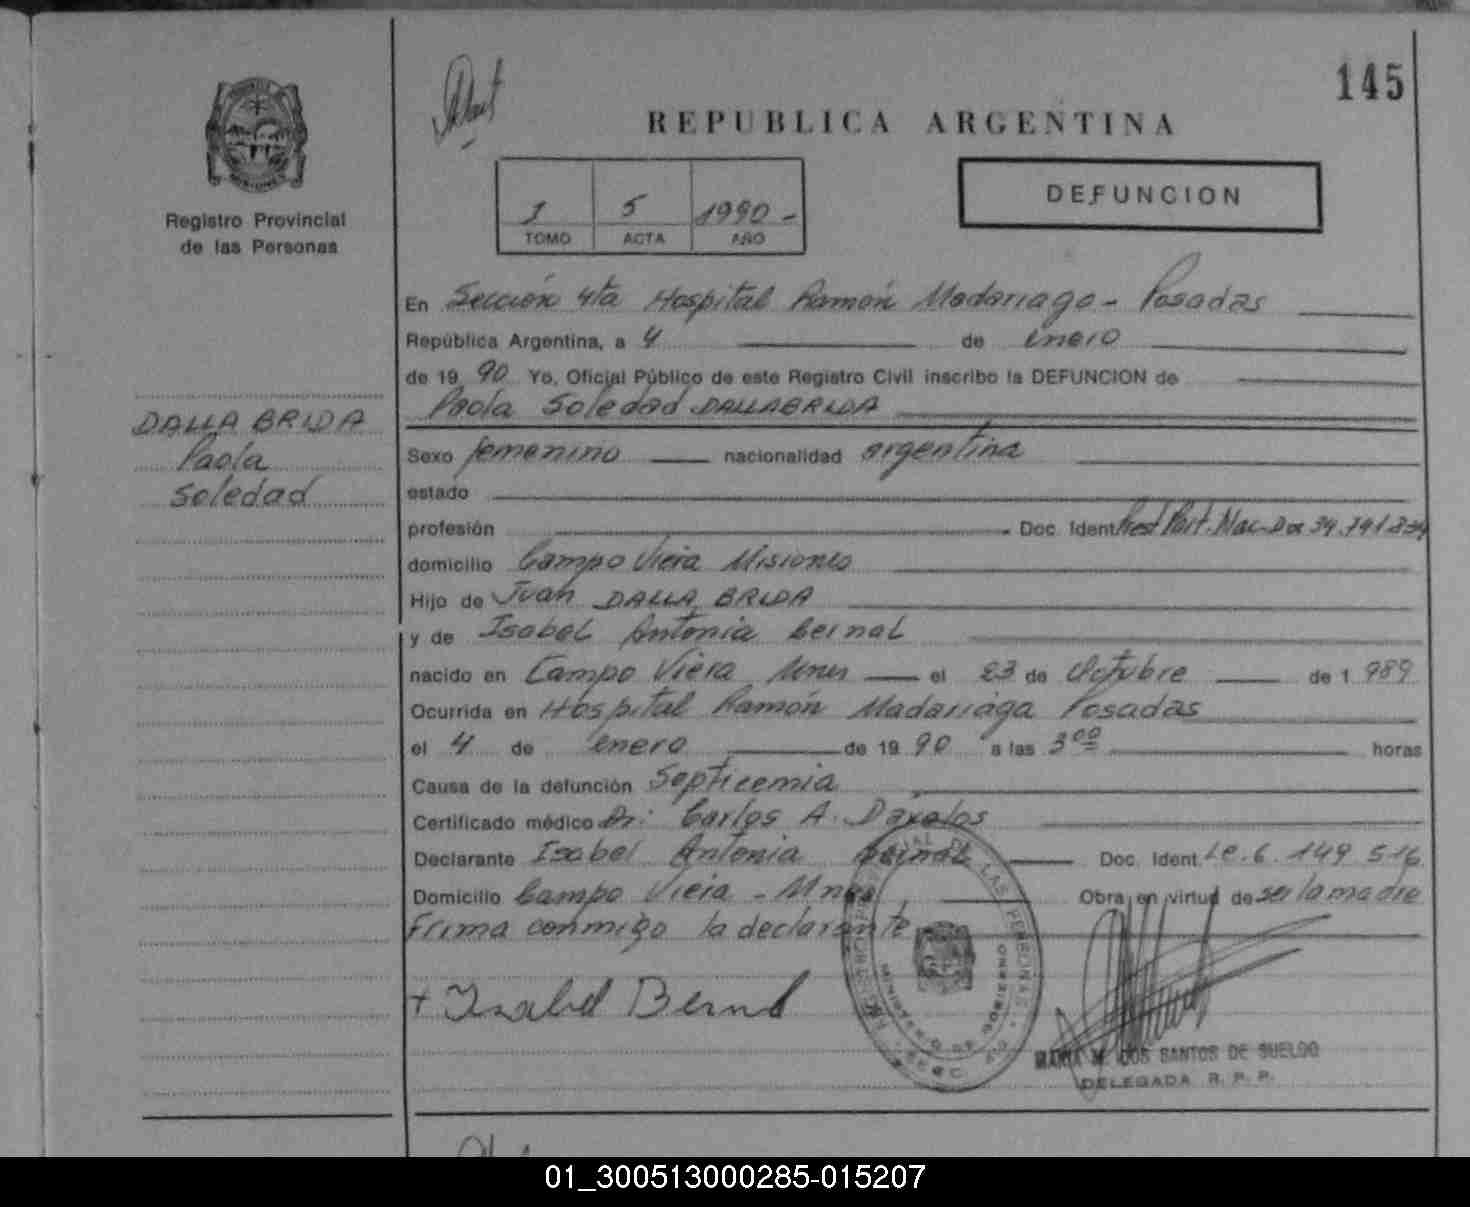 145
REPUBLICA ARGENTINA
Registro Provincial
de las Personas
1 5 1990-
TOMO ACTA AÑO
DEFUNCION
DALLA BRIDA
Paola
Soledad
En Sección 4ta Hospital Ramón Madariaga - Posadas
República Argentina, a 4 de enero
de 19 90 Yo, Oficial Público de este Registro Civil inscribo la DEFUNCION de
Paola Soledad DALLABRIDA
Sexo femenino nacionalidad argentina
estado
profesión Doc. Ident. Nac.
domicilio Campo Viera Misiones
Hijo de Juan DALLA BRIDA
y de Isabel Antonia Bernal
nacido en Campo Viera Mnes el 23 de Octubre de 1 989
Ocurrida en Hospital Ramón Madariaga Posadas
el 4 de enero de 19 90 a las 3 00 horas
Causa de la defunción Septicemia
Certificado médico Dr: Carlos A. Davalos
Declarante Isabel Antonia Bernal Doc. Ident. Lc. 6.149 516
Domicilio Campo Viera - Mnes Obra en virtud de ser la madre
Firma conmigo la declarante
+ Isabel Bernal
MINISTERIO DE GOBIERNO
DE LAS PERSONAS
MARIA M. DOS SANTOS DE SUELDO
DELEGADA R. P. P.
01_300513000285-015207